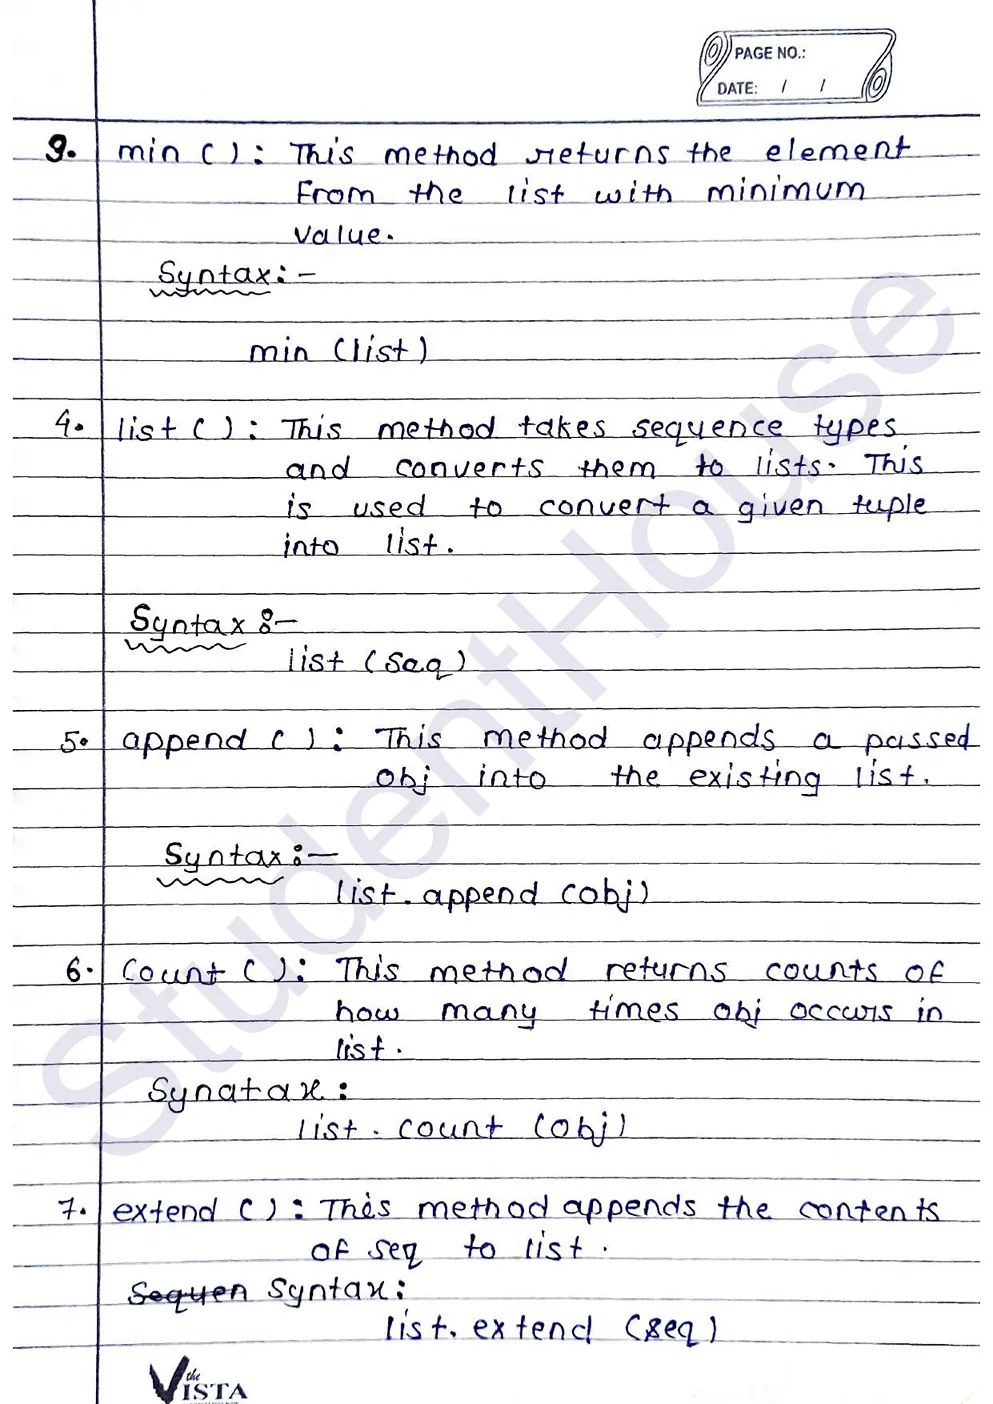 PAGE NO.:
DATE: / /
3. min ( ) : This method returns the element
From the list with minimum
value.
Syntax :-
min (list)
4. list ( ) : This method takes sequence types
and converts them to lists. This
is used to convert a given tuple
into list.
Syntax :-
list (seq)
5. append ( ) : This method appends a passed
obj into the existing list.
Syntax :-
list . append (obj)
6. Count ( ) : This method returns counts of
how many times obj occurs in
list.
Synatax :
list . count (obj)
7. extend ( ) : This method appends the contents
of seq to list .
Sequen Syntax :
list. extend (seq)
the
VISTA
StudentHouse